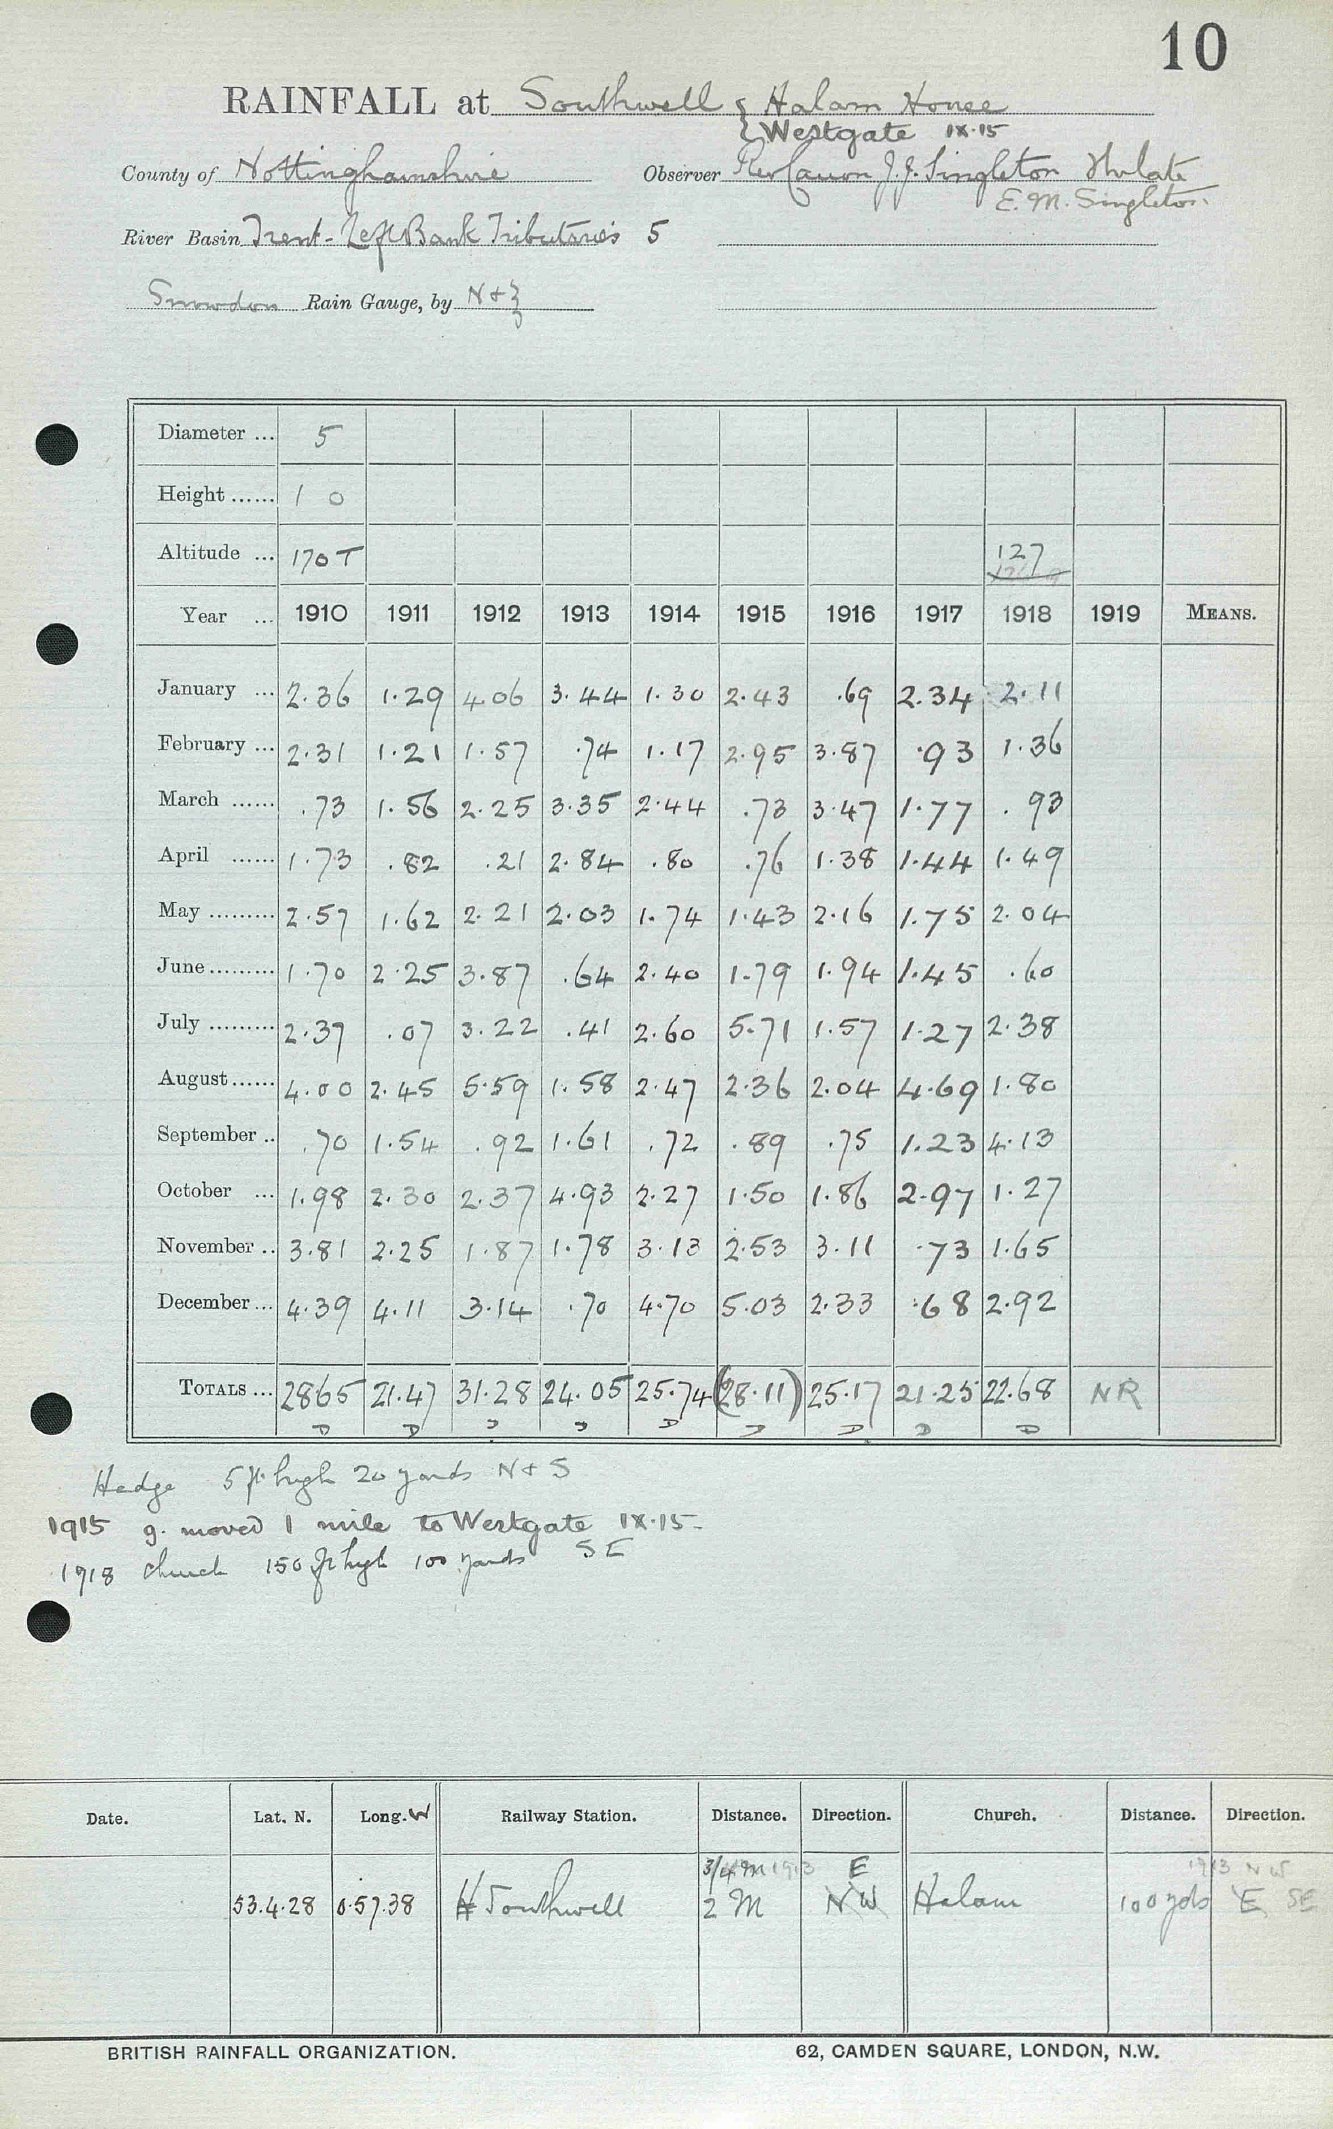 10
RAINFALL at Southwell { Halam House
{ Westgate IX.15
County of Nottinghamshire Observer Rev Canon J.J. Singleton
E.M. Singleton.
River Basin Trent - Left Bank Tributaries 5
Snowdon Rain Gauge, by N & Z
Diameter ... 5
Height ...... 1 0
Altitude ... 170 T 127
Year ... 1910 1911 1912 1913 1914 1915 1916 1917 1918 1919 MEANS.
January ... 2.36 1.29 4.06 3.44 1.30 2.43 .69 2.34 2.11
February ... 2.31 1.21 1.57 .74 1.17 2.95 3.87 .93 1.36
March ...... .73 1.56 2.25 3.35 2.44 .73 3.47 1.77 .93
April ...... 1.73 .82 .21 2.84 .80 .76 1.38 1.44 1.49
May ......... 2.57 1.62 2.21 2.03 1.74 1.43 2.16 1.75 2.04
June ......... 1.70 2.25 3.87 .64 2.40 1.79 1.94 1.45 .60
July ......... 2.37 .07 3.22 .41 2.60 5.71 1.57 1.27 2.38
August ...... 4.00 2.45 5.59 1.58 2.47 2.36 2.04 4.69 1.80
September .. .70 1.54 .92 1.61 .72 .89 .75 1.23 4.13
October ... 1.98 2.30 2.37 4.93 2.27 1.50 1.86 2.97 1.27
November .. 3.81 2.25 1.87 1.78 3.13 2.53 3.11 .73 1.65
December ... 4.39 4.11 3.14 .70 4.70 5.03 2.33 .68 2.92
TOTALS ... 28.65 21.47 31.28 24.05 25.74 (28.11) 25.17 21.25 22.68 NR
D D D D D D D D D
Hedge 5 ft high 20 yards N & S
1915 g. moved 1 mile to Westgate IX.15-
1918 church 150 ft high 100 yards SE
Date. Lat. N. Long. W Railway Station. Distance. Direction. Church. Distance. Direction.
3/4 M 1913 E 1913 NW
53.4.28 0.57.38 Southwell 2 M NW Halam 100 yds E SE
BRITISH RAINFALL ORGANIZATION. 62, CAMDEN SQUARE, LONDON, N.W.